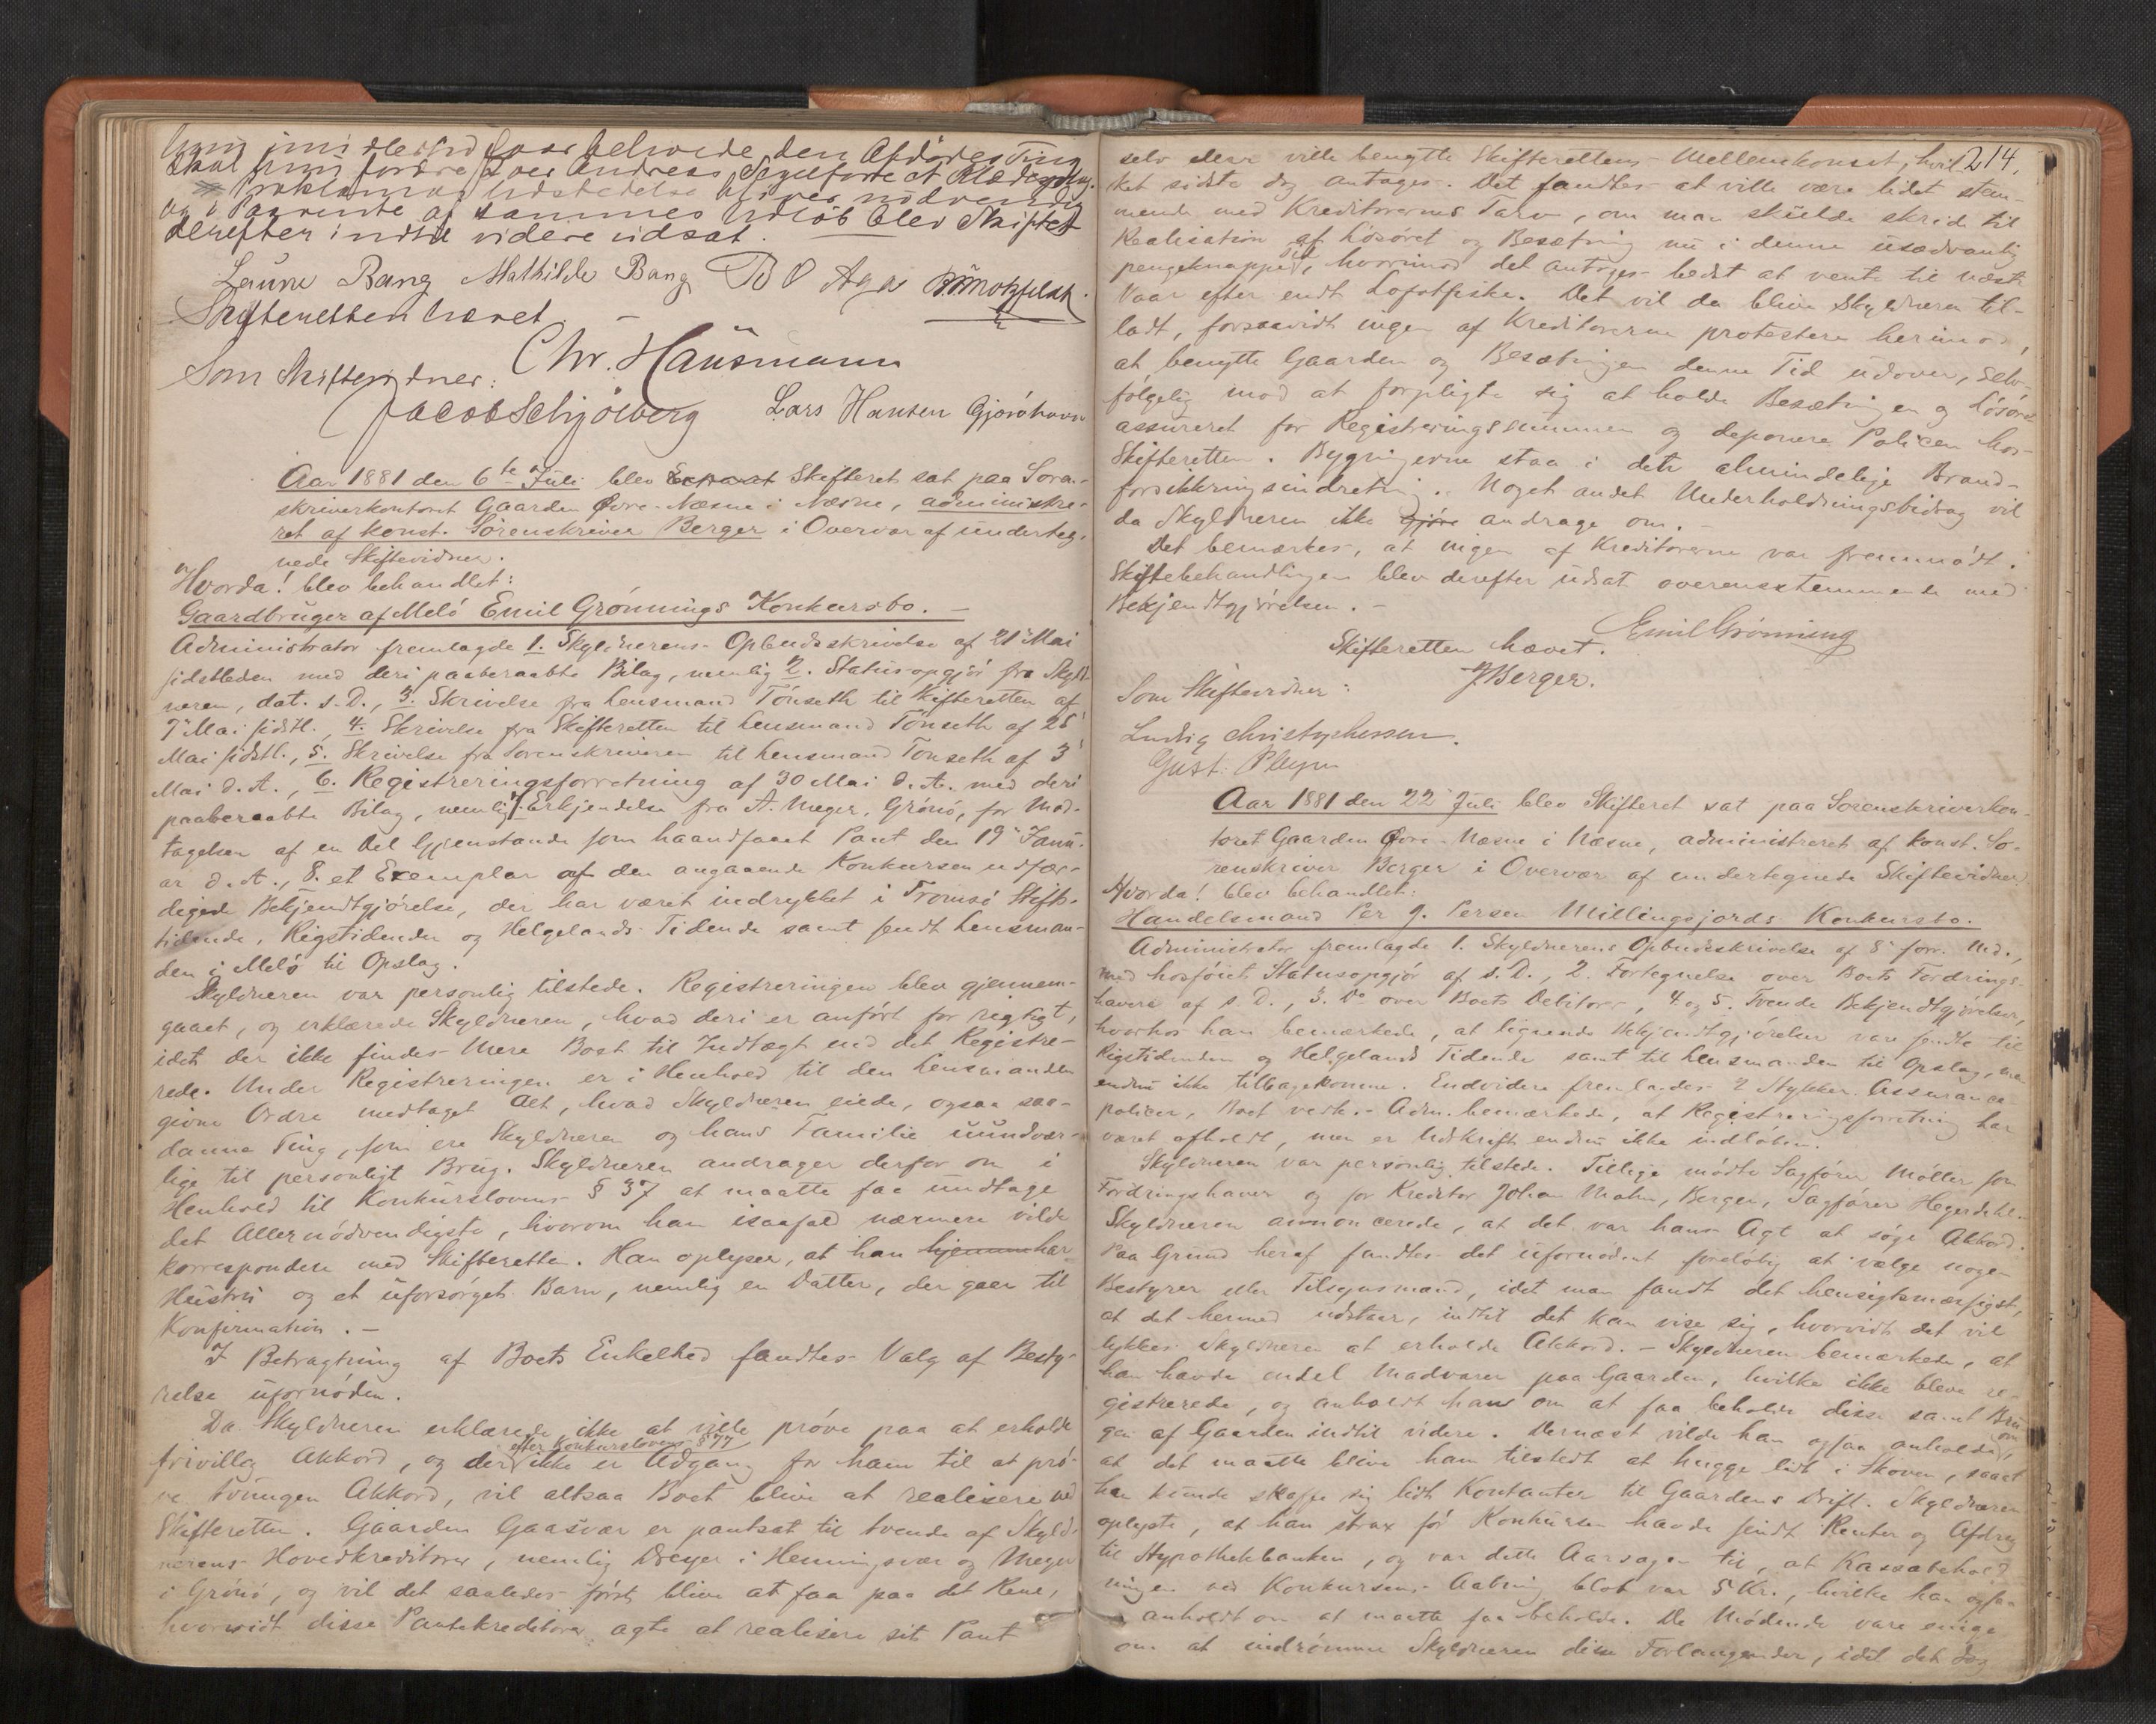 hun imidlertid foar beholde den Afdødes Ting
skal hun fordre over Andreas
Proklamas Udstedelse blives nødvendig
og i Paavente af sammes Udløb blev Skiftet
derefter indtil videre udsat.
Laura Bang Mathilde Bang B O Aga
Skifteretten hævet. –
Chr. Hausmann
Som Skiftevidner:
Jacob Schjölberg Lars Hansen
Aar 1881 den 6te Juli blev Exparat Skifteret sat paa Soren-
skriverkontoret Gaarden Øvre-Næsne i Næsne, administre-
ret af konst. Sørenskriver Berger i Overvær af underteg-
nede Skiftevidner.
Hvorda! blev behandlet:
Gaardbruger af Melö Emil Grönnings Konkursbo. –
Administrator fremlagde 1. Skyldnerens Opbudsskrivelse af 21 Mai
sidstleden med deri paaberaabte Bilag, nemlig 2. Statusopgjör fra Skyld-
neren, dat. s. D., 3. Skrivelse fra Lensmand Tönseth til Skifteretten af
7 Mai sidstl., 4. Skrivelse fra Skifteretten til Lensmand Tönseth af 28
Mai sidstl., 5. Skrivelse fra Sorenskriveren til Lensmand Tönseth af 3
Mai d. A., 6. Registreringsforretning af 30 Mai d. A. med deri
paaberaabte Bilag, nemlig 7. Erkjendelse fra A. Meyer, Grönö, for Mod-
tagelsen af en Del Gjenstande som haandfaaet Pant den 19 Janu-
ar d. A., 8. et Exemplar af den angaaende Konkursen udfær-
digede Bekjendtgjörelse, der har været indrykket i Tromsö Stifts-
tidende, Rigstidenden og Helgelands Tidende samt sendt Lensman-
den i Melö til Opslag.
Skyldneren var personlig tilstede. Registreringen blev gjennem-
gaaet, og erklærede Skyldneren, hvad deri er anført for rigtigt,
idet der ikke findes Mere Boet til Indtægt end det Registre-
rede. Under Registreringen er i Henhold til den Lensmanden
givne Ordre medtaget Alt, hvad Skyldneren eiede, ogsaa saa-
danne Ting, som ere Skyldneren og hans Familie uundvær-
lige til personligt Brug. Skyldneren andrager derfor om i
Henhold til Konkurslovens § 37 at maatte faa undtage
det Allernödvendigste, hvorom han isaafald nærmere vilde
korrespondere med Skifteretten. Han oplyser, at han har
Hustru og et uforsörget Barn, nemlig en Datter, der gaar til
Konfirmation. –
I Betragtning af Boets Enkelhed fandtes Valg af Besty-
relse ufornöden.
Da Skyldneren erklærede ikke at ville pröve paa at erholde
efter Konkurslovens § 77
frivillig Akkord, og der ikke er Adgang for ham til at prö-
ve tvungen Akkord, vil altsaa Boet blive at realisere ved
Skifteretten. Gaarden Gaasvær er pantsat til tvende af Skyld-
nerens Hovedkreditorer, nemlig Dreyer i Henningsvær og Meyer
i Grönö, og vil det saaledes först blive at faa paa det Rene,
hvorvidt disse Pantekreditorer agte at realisere sit Pant
214.
selv eller ville benytte Skifterettens Mellemkomst, hvil-
ket sidste dog antages. Det fandtes at ville være lidet stem-
mende med Kreditorernes Tarv, om man skulde skride til
Realisation af Lösöret og Besætning nu i denne usædvanlig
pengeknappe Tid, hvorimod det antoges bedst at vente til næste
Vaar efter endt Lofotfiske. Det vil da blive Skyldneren til-
ladt, forsaavidt ingen af Kreditorerne protestere herimod,
at benytte Gaarden og Besætningen denne Tid udover, selv-
fölgelig mod at forpligte sig at holde Besætningen og Lösöret
assureret for Registreringssummen og deponere Policen hos
Skifteretten. Bygningerne staa i dette almindelige Brand-
forsikkringsindretning. Noget andet Underholdningsbidrag vil
da Skyldneren ikke gjöre andrage om. –
Det bemærkes, at ingen af Kreditorerne var fremmödt.
Skiftebehandlingen blev derefter udsat overensstemmende med
Bekjendtgjörelsen. –
Emil Grönning
Skifteretten hævet.
J Berger.
Som Skiftevidner:
Ludvig Christophersen.
Gust. Pleym
Aar 1881 den 22 Juli blev Skifteret sat paa Sorenskriverkon-
toret Gaarden Øvre-Næsne i Næsne, administreret af konst. So-
renskriver Berger i Overvær af undertegnede Skiftevidner
Hvorda! blev behandlet:
Handelsmand Per J. Persen Millingsjords Konkursbo.
Administrator fremlagde 1. Skyldnerens Opbudsskrivelse af 8 forr. Md.,
med hosföiet Statusopgjör af s. D., 2. Fortegnelse over Boets Fordrings-
havere af s. D., 3. Do over Boets Debitorer, 4 og 5. Tvende Bekjendtgjörelser,
hvorhos han bemærkede, at lignende Bekjendtgjörelser vare sendte til
Rigstidenden og Helgelands Tidende samt til Lensmanden til Opslag, men
endnu ikke tilbagekomne. Endvidere fremlagdes 2 Stykker Assurance-
policer, Boet vedk. – Adm. bemærkede, at Registreringsforretning har
været afholdt, men er Udskrift endnu ikke indlöben.
Skyldneren var personlig tilstede. Tillige mödte Sagförer Möller som
Fordringshaver og for Kreditor Johan Mohn, Bergen, Sagförer Hegerdahl.
Skyldneren annoncerede, at det var hans Agt at söge Akkord.
Paa Grund heraf fandtes det ufornödent forelöbig at vælge nogen
Bestyrer eller Tilsynsmand, idet man fandt det hensigtsmæssigst,
at det hermed udstaar, indtil det kan vise sig, hvorvidt det vil
lykkes Skyldneren at erholde Akkord. – Skyldneren bemærkede, at
han havde endel Madvarer paa Gaarden, hvilke ikke bleve re-
gistrerede, og anholdt han om at faa beholde disse samt Bru-
gen af Gaarden indtil videre. Dernæst vilde han ogsaa anholde om,
at det maatte blive ham tilstedt at hugge lidt i Skoven, saaat
han kunde skaffe sig lidt Kontanter til Gaardens Drift. Skyldneren
oplyste, at han strax för Konkursen havde sendt Renter og Afdrag
til Hypothekbanken, og var dette Aarsagen til, at Kassabehold-
ningen ved Konkursens Aabning blot var 5 Kr., hvilke han ogsaa
anholdt om at maatte faa beholde. De Mödende vare enige
om at indrömme Skyldneren disse Forlangender, idet det dog